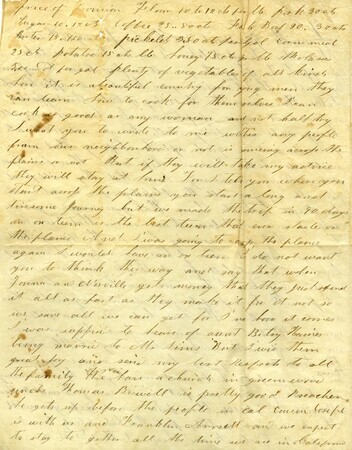 price of provision Flour 10 to 12 cts per lb pork 30 cts
Sugar 10. 12 cts Coffee 25. 50 cts Fresh Beef 20. 30 cts
Butter pickels 2.50 cts per gal corn meal
25 cts potatoes 15 cts lb honey 75 cts per lb
per gal plenty of vegetables of all kinds
this it is a beautiful country for young men they
can learn how to cook for themselves I can
cook as good as any woman and not half try
I want you to write to me wether any people
from our neighborhood or not is coming across the
plains or not But if they will take my advice
they will stay at home I must tell you when you
start across the plains you start a long and
tiresome journey but we made the trip in 90 days
an ox team is the best team that ever stole on
the plains And if I was going to cross the plains
again I would have an ox team I do not want
you to think this way and say that when
gets money that they just spend
it all as fast as they make it for it not so
we save all we can get for I know how it comes
I was suppris to hear of aunt Betsy
being married to Mr Sims But I wish them
great joy and send my best respects to all
the family They have a church in
uncle Thomas is pretty good preacher
he gets up before the people in cal
is with us and Franklin and we expect
to stay to gether all the time we are in California